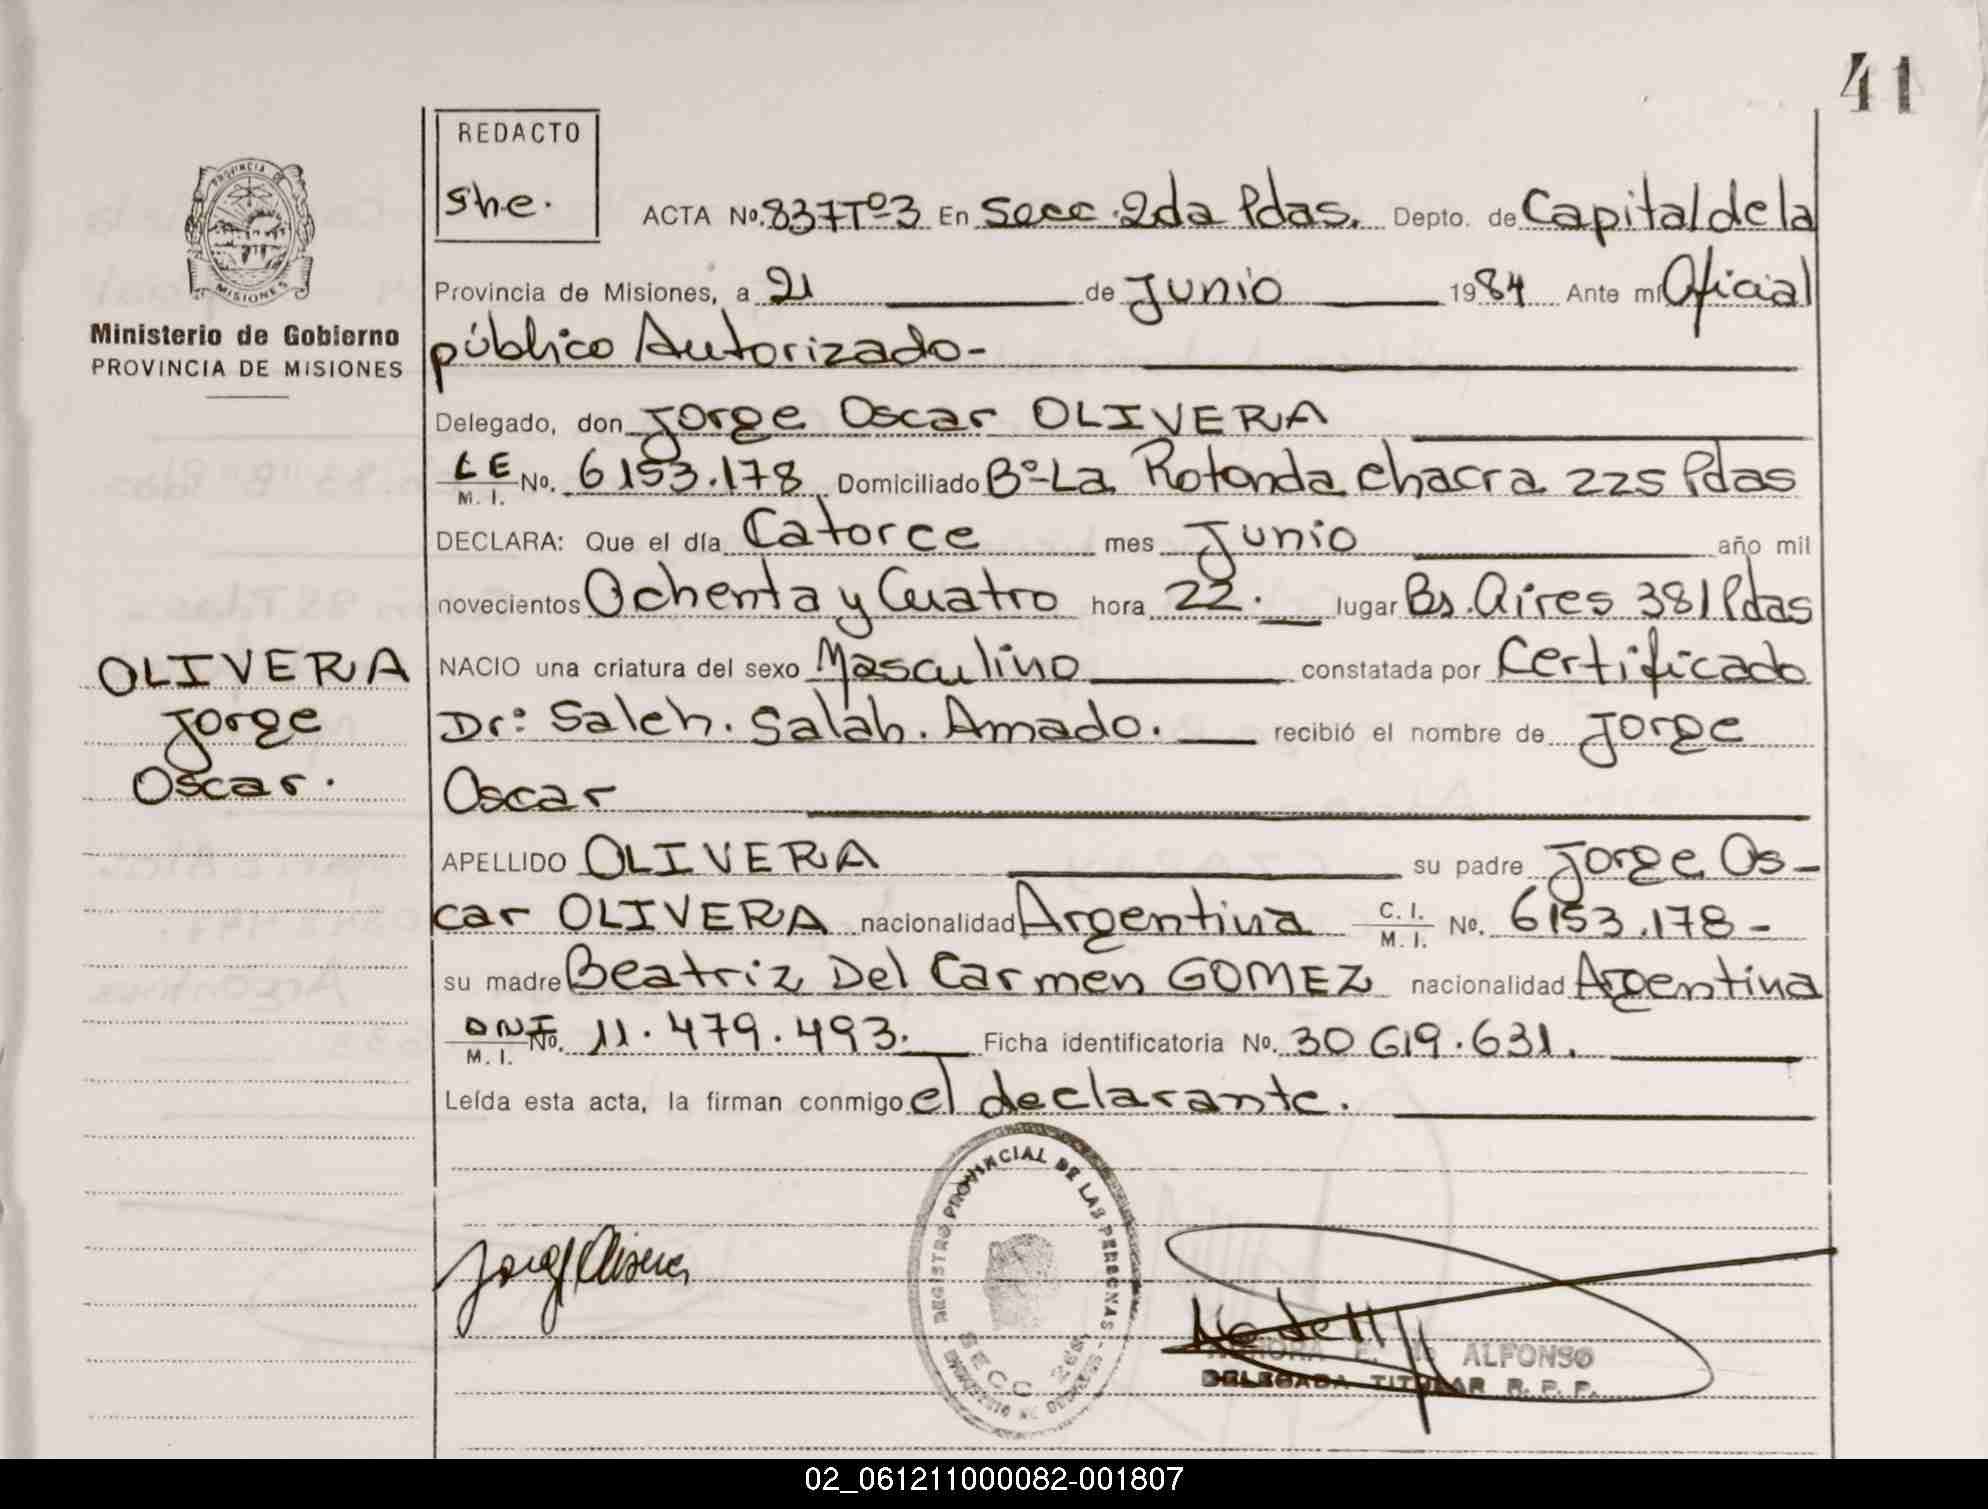 41
REDACTO
She.
ACTA No. 837 Tº-3 En Secc. 2da Pdas. Depto. de Capital de la
Provincia de Misiones, a 21 de Junio 1984 Ante mí Oficial
público Autorizado-
Delegado, don Jorge Oscar OLIVERA
LE M. I. No. 6153.178 Domiciliado Bº-La Rotonda chacra 225 Pdas
DECLARA: Que el día Catorce mes Junio año mil
novecientos Ochenta y Cuatro hora 22. lugar Bs. Aires 381 Pdas
NACIO una criatura del sexo Masculino constatada por Certificado
Dr: Saleh. Salah. Amado. recibió el nombre de Jorge
Oscar
APELLIDO OLIVERA su padre Jorge Os-
car OLIVERA nacionalidad Argentina C. I. M. I. No. 6153.178-
su madre Beatriz Del Carmen GOMEZ nacionalidad Argentina
DNI M. I. No. 11.479.493. Ficha identificatoria No. 30619.631.
Leída esta acta, la firman conmigo el declarante.
PROVINCIA DE
MISIONES
Ministerio de Gobierno
PROVINCIA DE MISIONES
OLIVERA
Jorge
Oscar.
Jorge Olivera
REGISTRO PROVINCIAL DE LAS PERSONAS
SECC 2da
ALFONSO
DELEGADA TITULAR R. P. P.
02_061211000082-001807